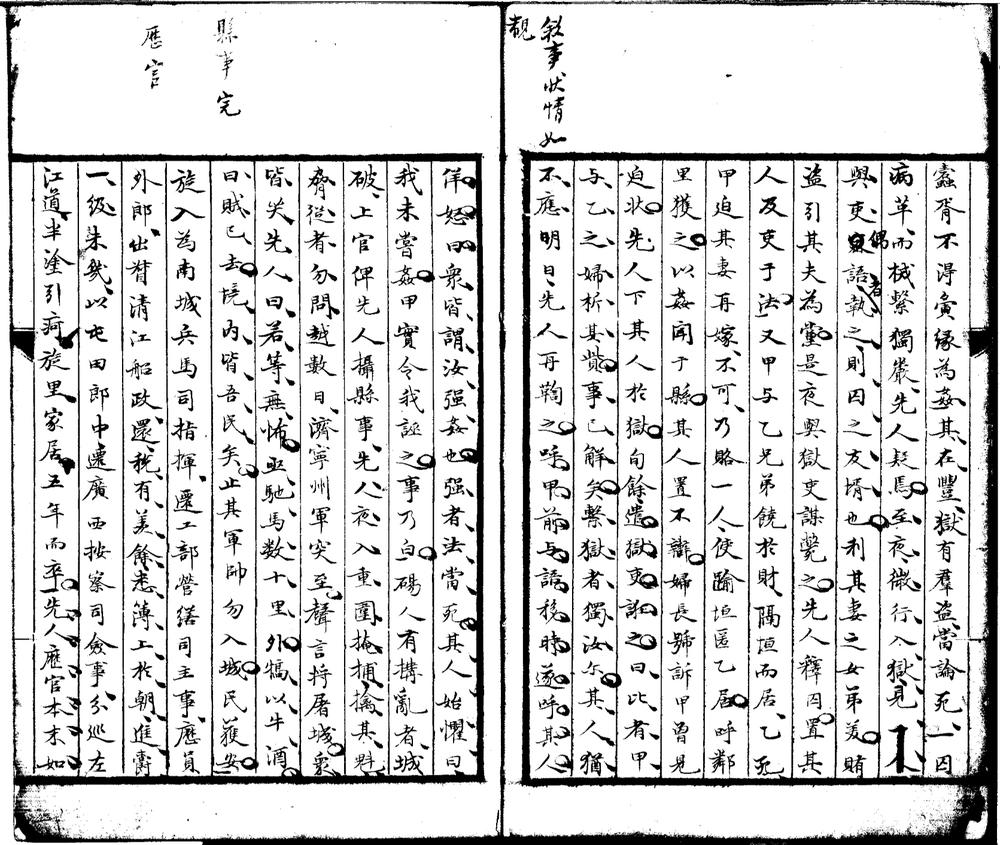 敘事狀情如
覩
蠹胥不得夤緣為姦其在豐獄有羣盜當論死一囚
病革而械繫獨嚴先人疑焉至夜微行入獄見一人
與吏偶語者執之則囚之友壻也利其妻之女弟美賄
盜引其夫為黨是夜與獄吏謀斃之先人釋囚置其
人及吏于法又甲与乙兄弟饒於財隔垣而居乙死
甲迫其妻再嫁不可乃賂一人使踰垣匿乙居呼鄰
里獲之以姦聞于縣其人置不辯婦長號訴甲曾見
迫狀先人下其人於獄旬餘遣獄吏謝之曰比者甲
与乙之婦析其貲事已解矣繫獄者獨汝尓其人猶
不應明日先人再鞫之呼甲前与語移時遂呼其人
縣事完
歷官
佯怒曰衆皆謂汝强姦也强者法當死其人始懼曰
我未嘗姦甲實令我誣之事乃白碭人有搆亂者城
破上官俾先人攝縣事先人夜入重圍掩捕擒其魁
脅從者勿問越數日濟寧州軍突至聲言將屠城衆
皆哭先人曰若等無怖亟馳馬数十里外犒以牛酒
曰賊已去境内皆吾民矣止其軍帥勿入城民獲安
旋入為南城兵馬司指揮遷工部營繕司主事歷員
外郎出督清江船政還税有羡餘悉簿上於朝進爵
一級未幾以屯田郎中遷廣西按察司僉事分巡左
江道半塗引疴旋里家居五年而卒先人歷官本末如